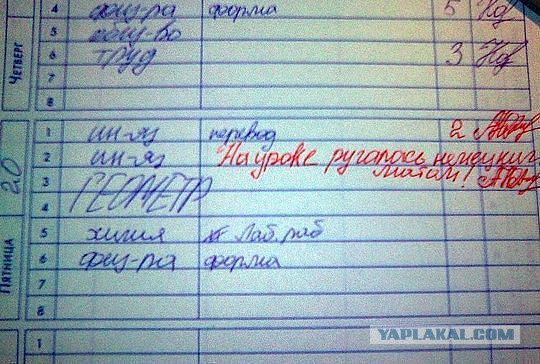 4 физ-ра форма 5
ЧЕТВЕРГ
5 общ-во
6 труд 3
7
8
20
ПЯТНИЦА
1 ин-яз перевод 2
2 ин-яз На уроке ругалась немецким
матом!
3 ГЕОМЕТР
4
5 химия лаб. раб
6 физ-ра форма
7
8
1
YAPLAKAL.COM